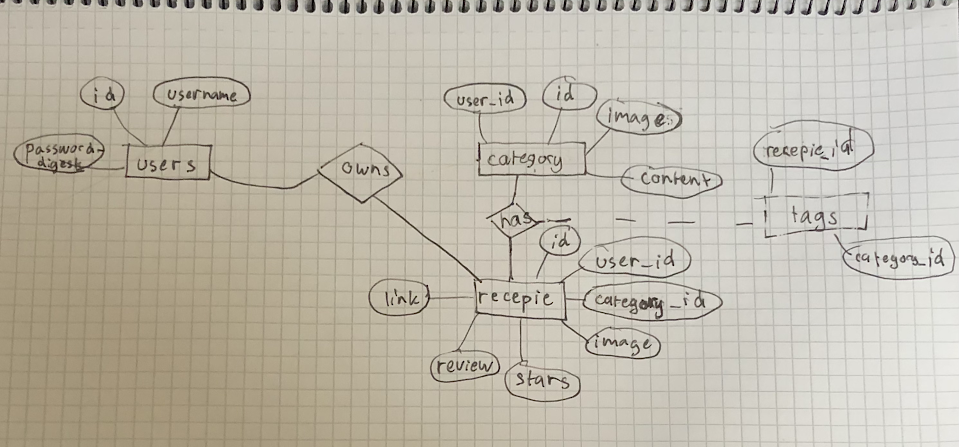 id
username
password-
digest
users
owns
user_id
id
image
category
content
has
recepie_id
tags
category_id
id
user_id
link
recepie
category_id
image
review
stars